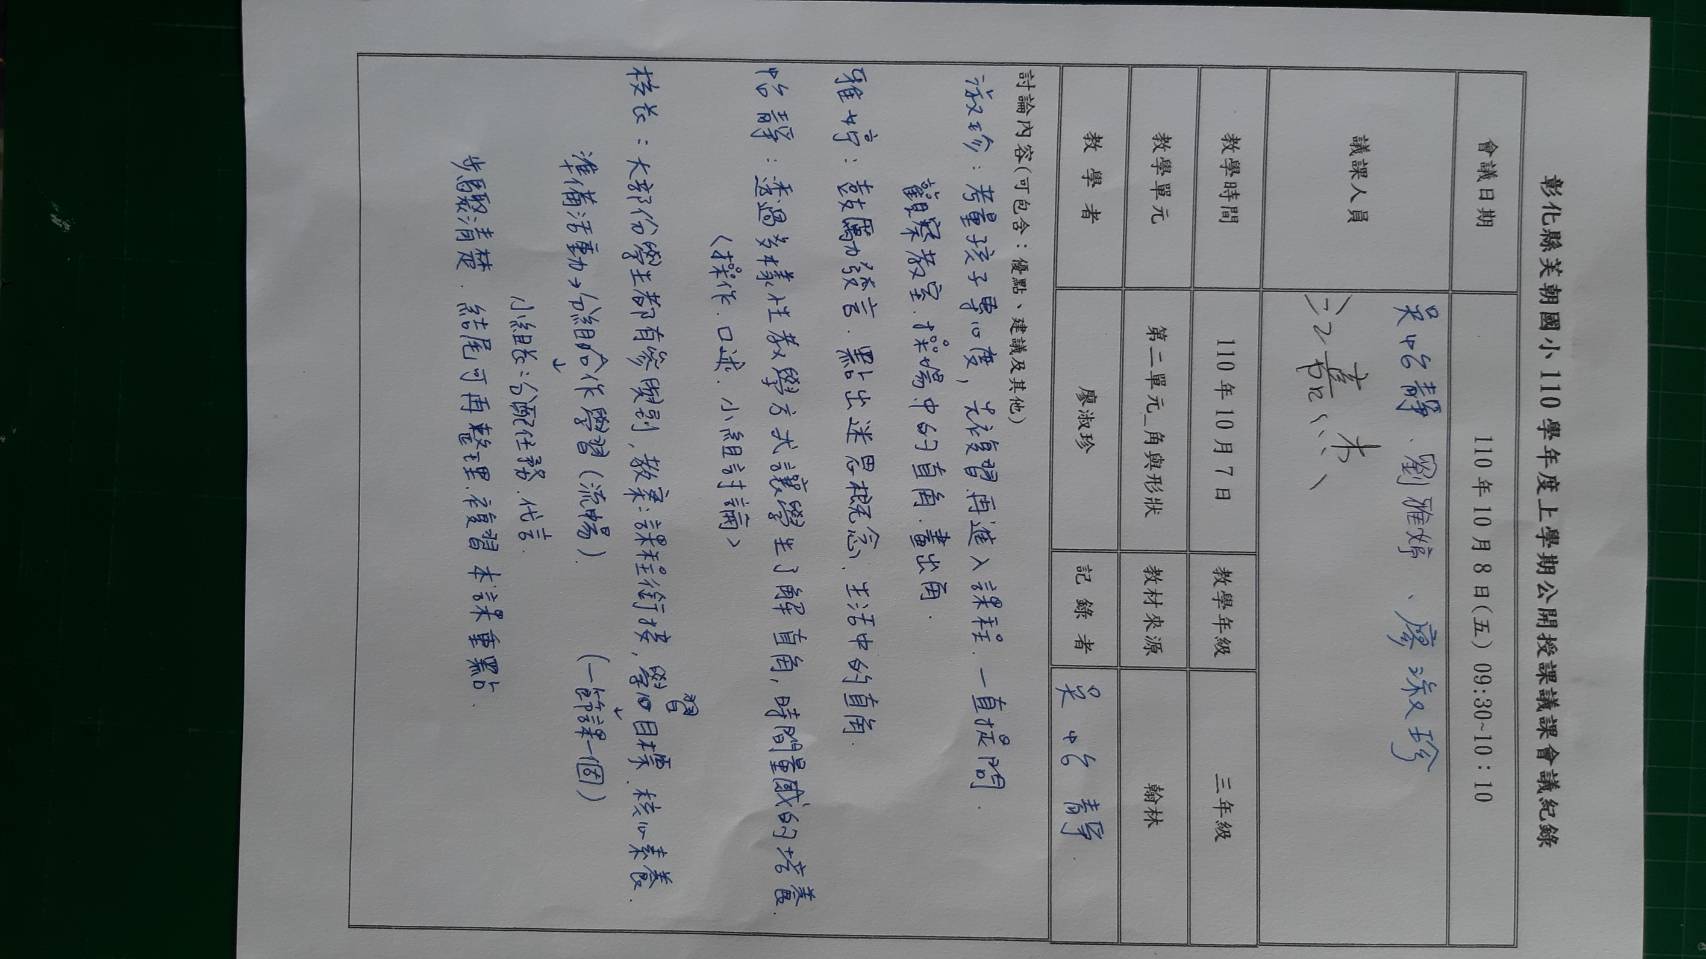 彰化縣芙朝國小110學年度上學期公開授課議課會議紀錄
會議日期 110年10月8日(五) 09:30~10:10
議課人員 吳怡靜、劉雅婷、廖淑珍
教學時間 110年10月7日 教學年級 三年級
教學單元 第二單元_角與形狀 教材來源 翰林
教學者 廖淑珍 記錄者 吳怡靜
討論內容(可包含:優點、建議及其他)
淑珍:考量孩子專心度,先複習再進入課程.一直提問.
觀察教室.操場中的直角.畫出角.
雅婷:鼓勵發言.點出迷思概念.生活中的直角.
怡靜:透過多樣性教學方式讓學生了解直角,時間量感的培養.
<操作.口述.小組討論>
校長:大部份學生都有參與到,教案:課程銜接,學習目標.核心素養.
準備活動→分組合作學習(流暢). (一節課一個)
小組長:分配任務.代言.
步驟清楚.結尾可再整理.複習本課重點.